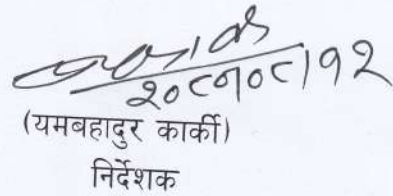 २०८१।०८।१२
(यमबहादुर कार्की)
निर्देशक